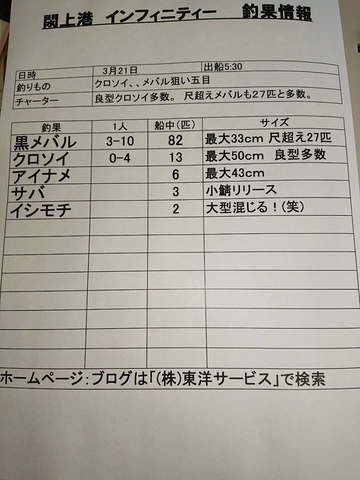 閖上港 インフィニティー 釣果情報
日時 3月21日 出船5:30
釣りもの クロソイ、、メバル狙い五目
チャーター 良型クロソイ多数。 尺超えメバルも27匹と多数。
釣果 1人 船中(匹) サイズ
黒メバル 3-10 82 最大33cm 尺超え27匹
クロソイ 0-4 13 最大50cm 良型多数
アイナメ 6 最大43cm
サバ 3 小鯖リリース
イシモチ 2 大型混じる!(笑)
ホームページ:ブログは「(株)東洋サービス」で検索